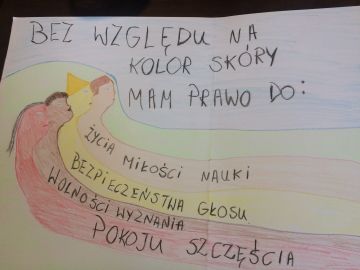 BEZ WZGLĘDU NA
KOLOR SKÓRY
MAM PRAWO DO:
ŻYCIA MIŁOŚCI NAUKI
BEZPIECZEŃSTWA GŁOSU
WOLNOŚCI WYZNANIA
POKOJU SZCZĘŚCIA